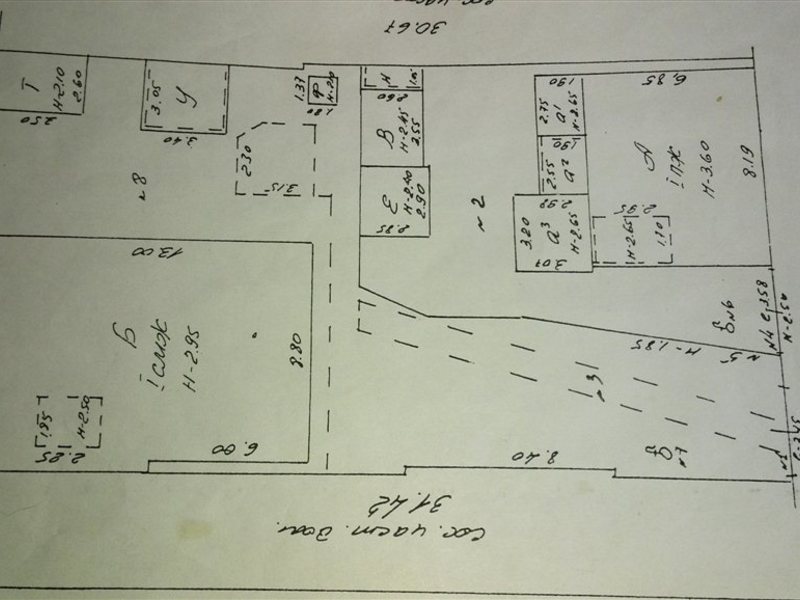 30.67
Т
Н-2.10
2.60
2.50
3.05
У
3.40
1.37
Ф
1.80
Н
2.60
В
Н-2.45
2.55
Е
Н-2.40
2.90
2.85
2.30
3.15
№8
№2
1.90
2.75
а¹
Н-2.65
1.90
2.55
а²
2.98
3.20
а³
Н-2.65
3.07
6.85
А
1пж
Н-3.60
8.19
2.95
Н-2.65
1.20
13.00
Б
1смж
Н-2.95
8.80
1.95
Н-2.50
2.85
6.00
Н-1.85
№5
№6
№4
Н-2.50
№3
№7
№1
8.40
31.42
сос. част. дом.